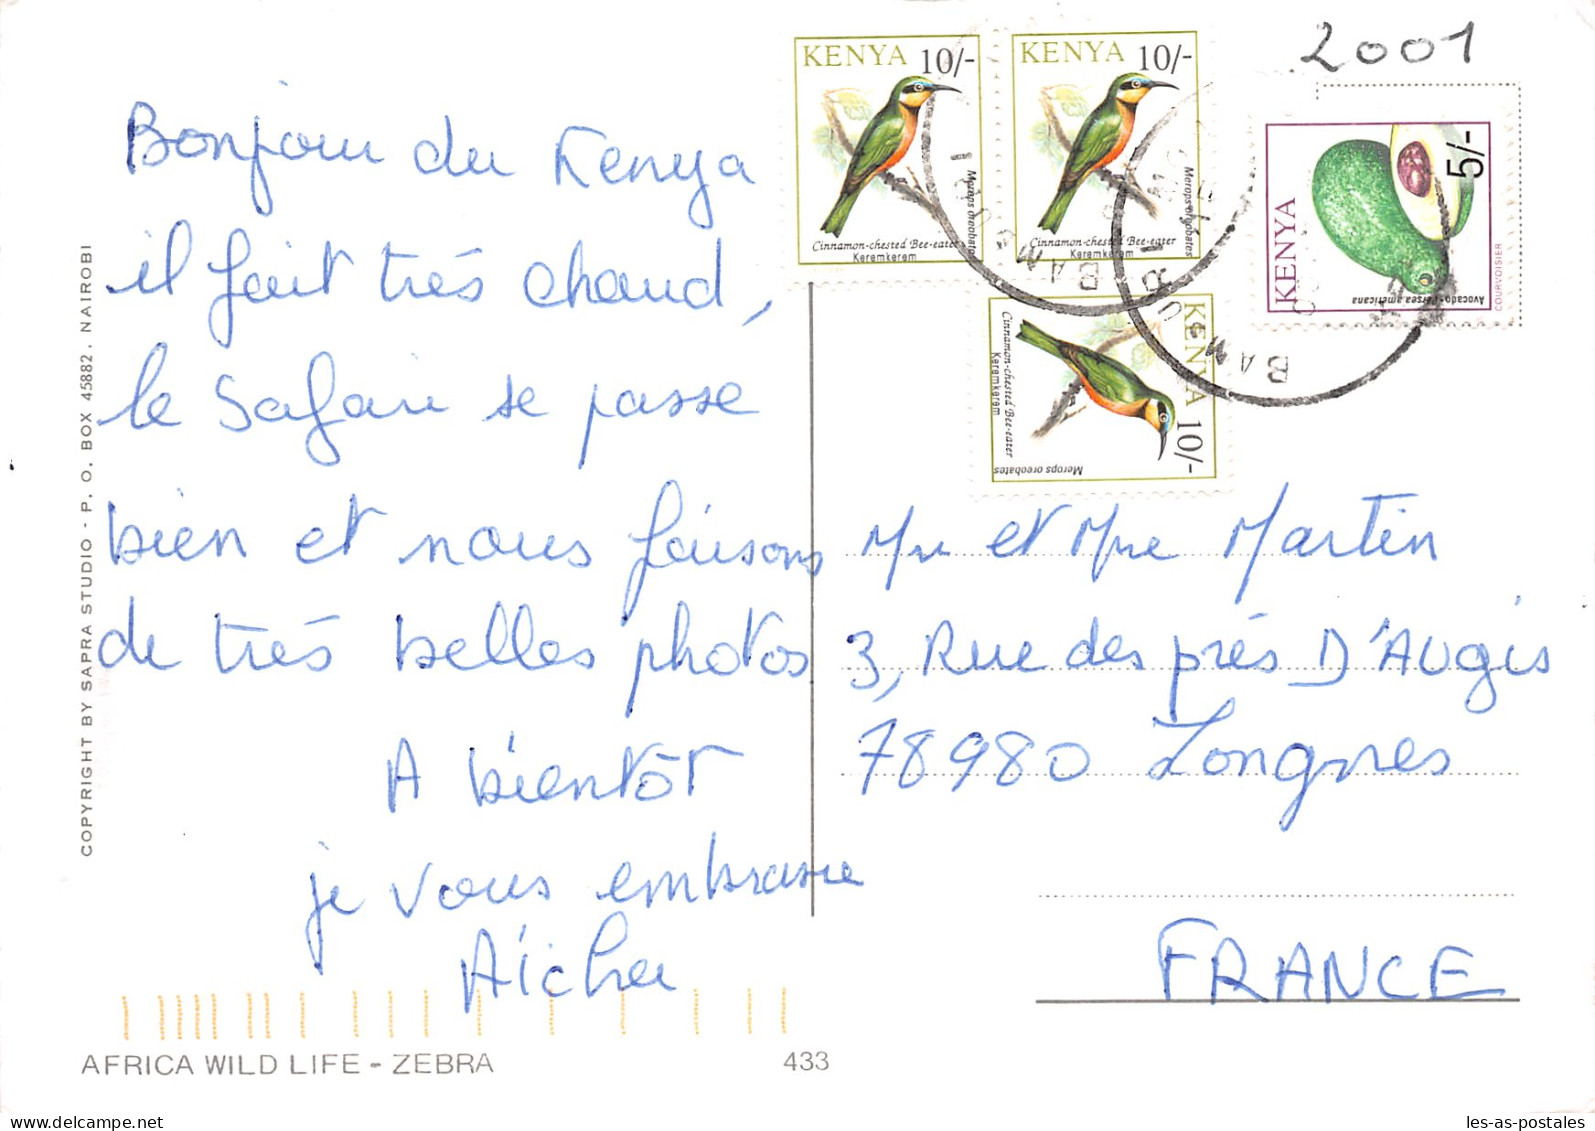 2001
KENYA 10/-
Merops oreobates
Cinnamon-chested Bee-eater
Keremkerem
KENYA 10/-
Merops oreobates
Cinnamon-chested Bee-eater
Keremkerem
KENYA 5/-
Avocado - Persea americana
COURVOISIER
KENYA 10/-
Merops oreobates
Cinnamon-chested Bee-eater
Keremkerem
BAMBURI
Bonjour du Kenya
il fait très chaud,
le Safari se passe
bien et nous faisons
de très belles photos
A bientôt
je vous embrasse
Aïcha
Mr et Mme Martin
3, Rue des prés D'AUgis
78980 Longnes
FRANCE
COPYRIGHT BY SAPRA STUDIO - P. O. BOX 45882, NAIROBI
AFRICA WILD LIFE - ZEBRA 433
les-as-postales